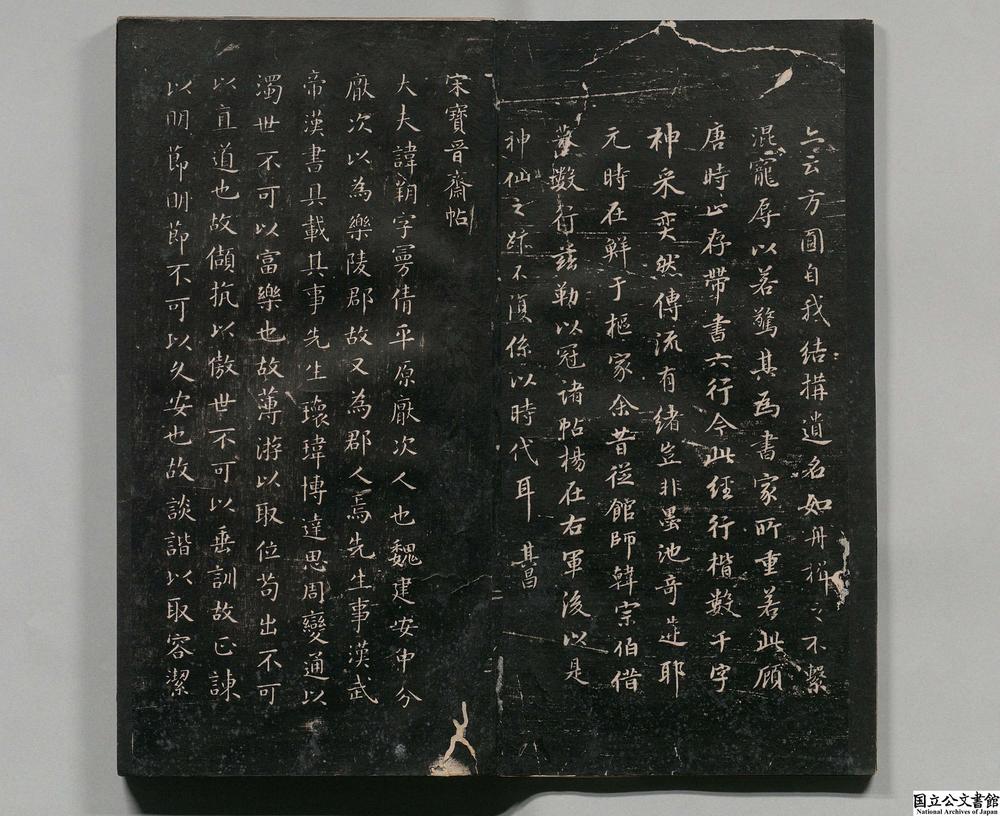 亦云方圓自我結構遺名如舟揖之不繫
混寵辱以若驚其為書家所重若此顧
唐時止存帶書六行今此經行楷數千字
神采奕然傳流有緒豈非墨池奇遘耶
元時在鮮于樞家余昔從館師韓宗伯借
摹數行茲勒以冠諸帖楊在右軍後以是
神仙之跡不復係以時代耳 其昌
宋寶晉齋帖
大夫諱朔字曼倩平原厭次人也魏建安中分
厭次以為樂陵郡故又為郡人焉先生事漢武
帝漢書具載其事先生瓌瑋博達思周變通以
濁世不可以富樂也故薄游以取位苟出不可
以直道也故傾抗以傲世傲世不可以垂訓故正諫
以明節明節不可以久安也故談諧以取容潔
国立公文書館
National Archives of Japan